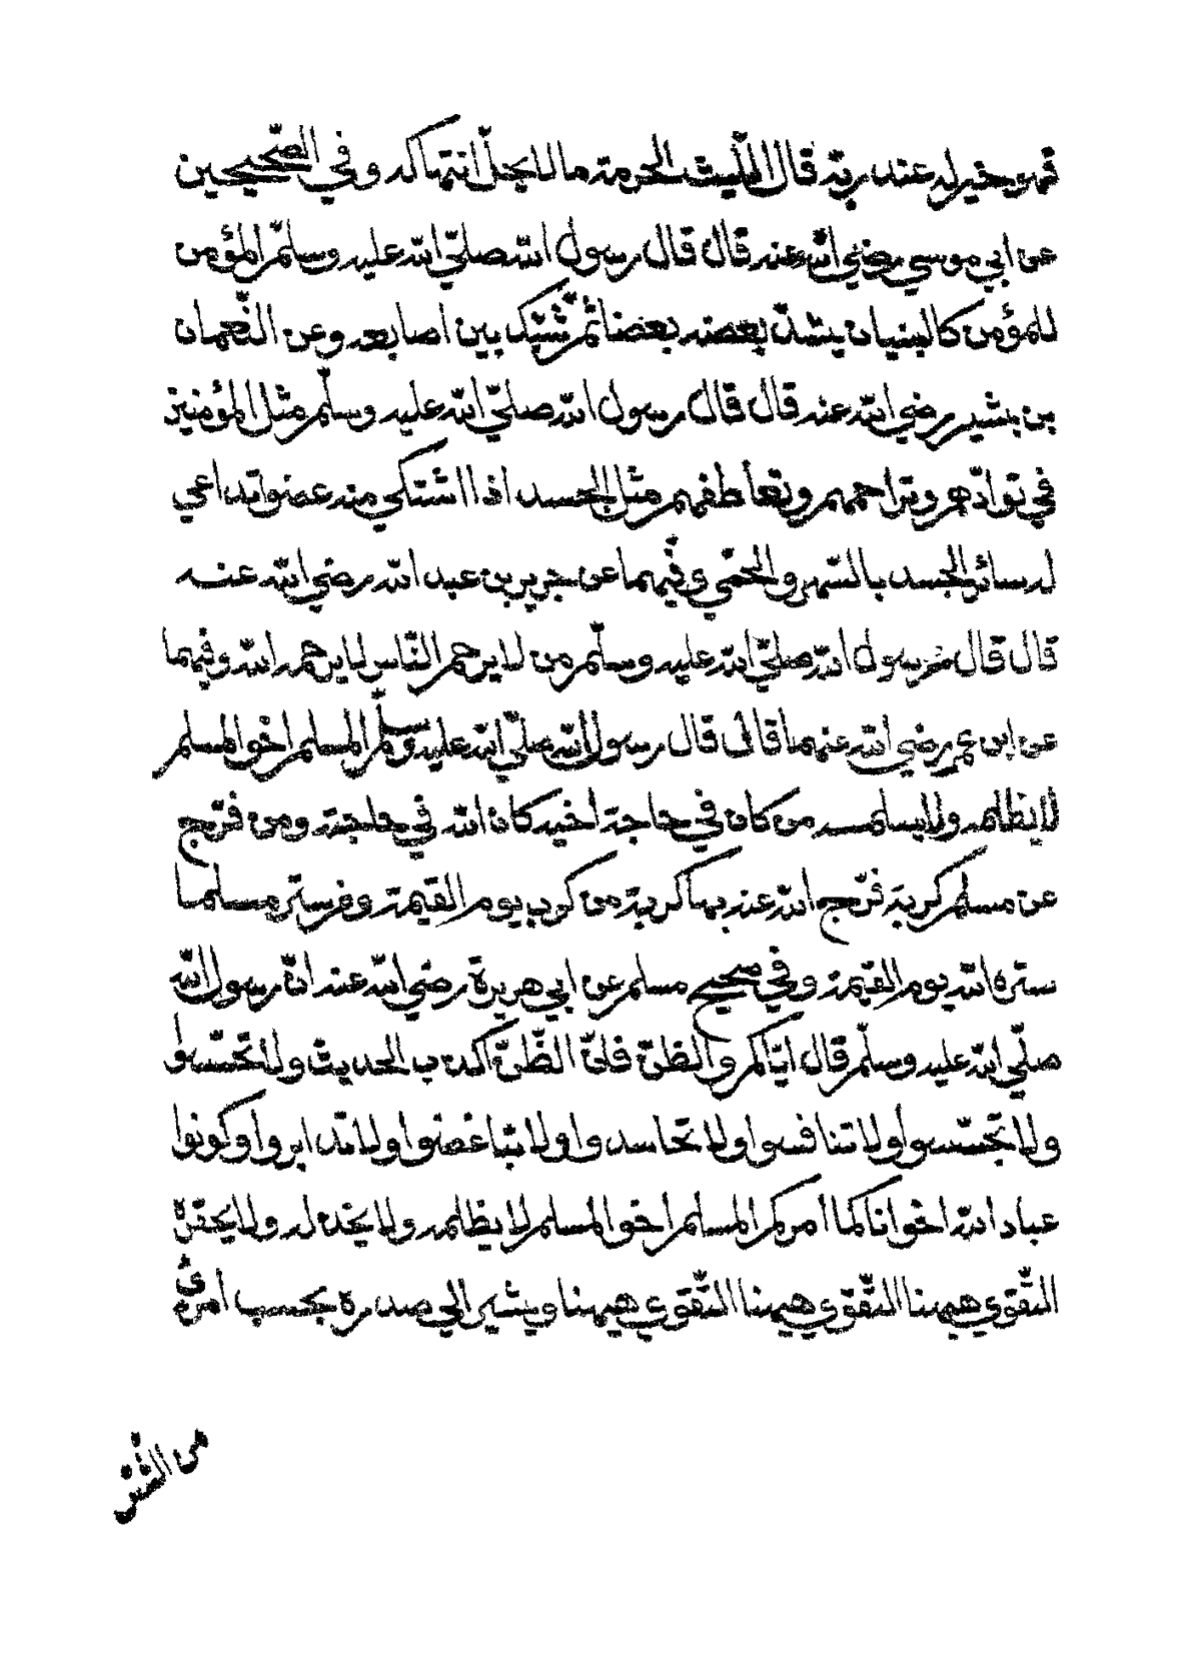 فهو خير له عند ربه قال الليث الحرمة ما لا يحل انتهاكه وفي الصحيحين
عن ابي موسي رضي الله عنه قال قال رسول الله صلي الله عليه وسلم المؤمن
للمؤمن كالبنيان يشد بعضه بعضا ثم شبك بين اصابعه وعن النعمان
بن بشير رضي الله عنه قال قال رسول الله صلي الله عليه وسلم مثل المؤمنين
في توادهم وتراحمهم وتعاطفهم مثل الجسد اذا اشتكي منه عضو تداعي
له سائر الجسد بالسهر والحمي وفيهما عن جرير بن عبد الله رضي الله عنه
قال قال رسول الله صلي الله عليه وسلم من لا يرحم الناس لا يرحمه الله وفيهما
عن ابن عمر رضي الله عنهما قال قال رسول الله صلي الله عليه وسلم المسلم اخو المسلم
لا يظلمه ولا يسلمه من كان في حاجة اخيه كان الله في حاجته ومن فرج
عن مسلم كربة فرج الله عنه بها كربة من كرب يوم القيمة ومن ستر مسلما
ستره الله يوم القيمة وفي صحيح مسلم عن ابي هريرة رضي الله عنه ان رسول الله
صلي الله عليه وسلم قال اياكم والظن فان الظن اكذب الحديث ولا تحسسوا
ولا تجسسوا ولا تنافسوا ولا تحاسدوا ولا تباغضوا ولا تدابروا وكونوا
عباد الله اخوانا كما امركم المسلم اخو المسلم لا يظلمه ولا يخذله ولا يحقره
التقوي ههنا التقوي ههنا التقوي ههنا ويشير الي صدره بحسب امرئ
من الشر